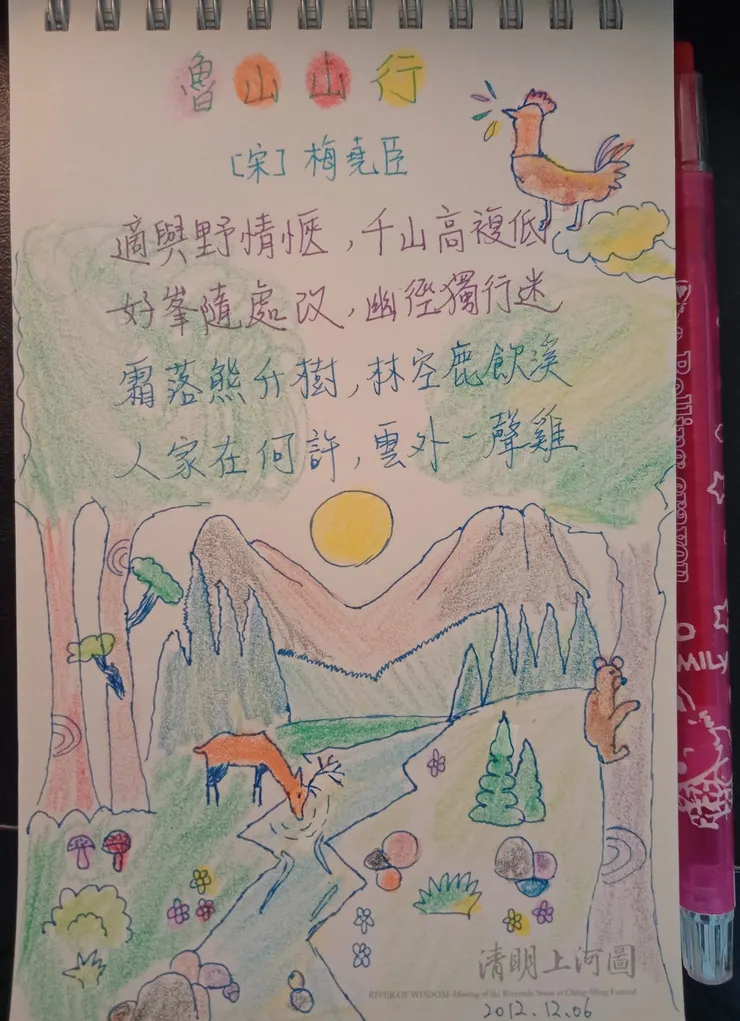 魯山山行
[宋]梅堯臣
適與野情愜,千山高複低
好峯隨處改,幽徑獨行迷
霜落熊升樹,林空鹿飲溪
人家在何許,雲外一聲雞
清明上河圖
RIVER OF WISDOM
2012.12.06
Rolling crayon
MILY